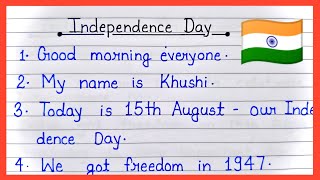 Independence Day
1. Good morning everyone.
2. My name is Khushi.
3. Today is 15th August - our Inde
dence Day.
4. We got freedom in 1947.